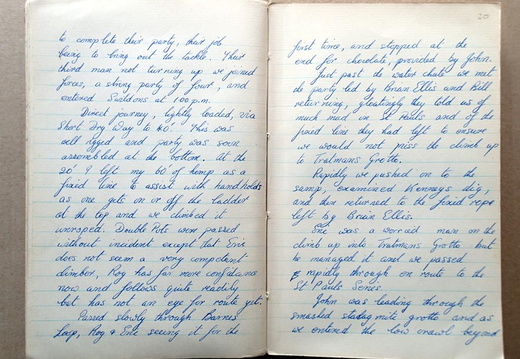 to complete their party, their job
being to bring out the tackle. Their
third man not turning up we joined
forces, a strong party of four, and
entered Swildons at 1.00 p.m.
Direct journey, lightly loaded, via
Short Dry Way to 40'. This was
well rigged and party was soon
assembled at the bottom. At the
20' I left my 60 of hemp as a
fixed line to assist with handholds
as one gets on or off the ladder
at the top and we climbed it
unroped. Double Pots were passed
without incident except that Eric
does not seem a very competent
climber, Roy has far more confidence
now and follows quite readily
but has not an eye for route yet.
Passed slowly through Barnes
Loop, Roy & Eric seeing it for the
20
first time, and stopped at the
end for chocolate, provided by John.
Just past the water chute we met
the party led by Brian Ellis and Bill
returning, gleatingly they told us of
much mud in St Pauls and of the
fixed line they had left to ensure
we would not miss the climb up
to Tratmans Grotto.
Rapidly we pushed on to the
sump, examined Kenneys dig,
and then returned to the fixed rope
left by Brian Ellis.
Eric was a worried man on the
climb up into Tratmans Grotto but
he managed it and we passed
rapidly through en route to the
St Pauls Series.
John was leading through the
smashed stalagmite grotto and as
we entered the low crawl beyond